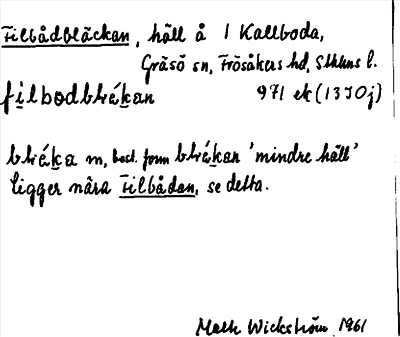 Filbådbläckan, häll å 1 Kallboda,
Gräsö sn, Frösåkers hd, Sthlms l.
filbodblékan 971 ek (13I0j)
bléka m, best. form blékan 'mindre häll'
ligger nära Filbådan, se detta.
Math Wickström 1961